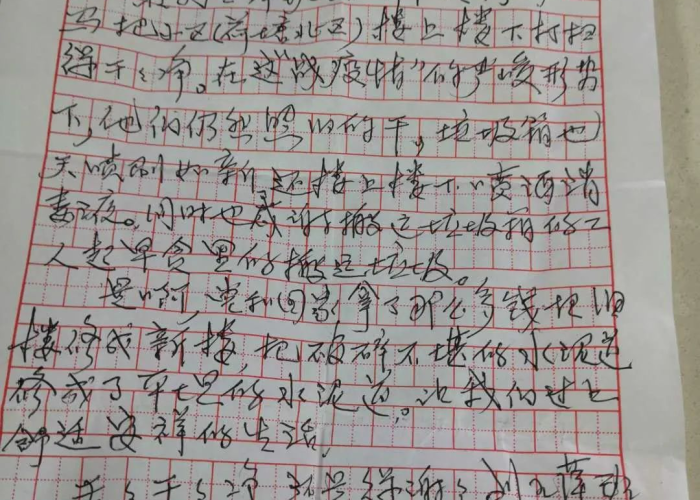 把小区(前坡北区)楼上楼下打扫
得干干净净。在这"战疫情"的严峻形势
下,他们仍然照旧的干,垃圾箱也
天喷刷如新,还楼上楼下喷洒消
毒液。同时也感谢搬运垃圾箱的工
人起早贪黑的搬运垃圾。
是啊,党和国家拿了那么多钱把旧
楼修成新楼,把破碎不堪的水泥道
修成了平坦的水泥道。让我们过上
舒适安祥的生活。
干干净